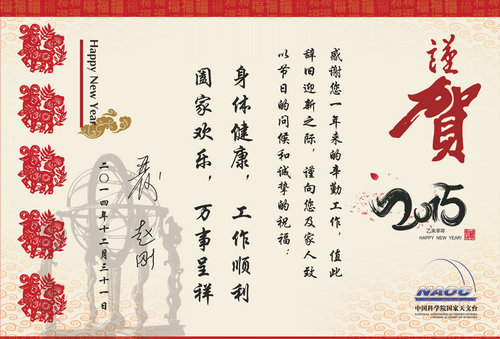 福福福福福福福福福福
謹賀
2015
乙未羊年
HAPPY NEW YEAR!
NAOC
中国科学院国家天文台
NATIONAL ASTRONOMICAL OBSERVATORIES
CHINESE ACADEMY OF SCIENCES
感谢您一年来的辛勤工作，值此
辞旧迎新之际，谨向您及家人致
以节日的问候和诚挚的祝福：
身体健康，工作顺利
阖家欢乐，万事呈祥
赵刚
二〇一四年十二月三十一日
Happy New Year